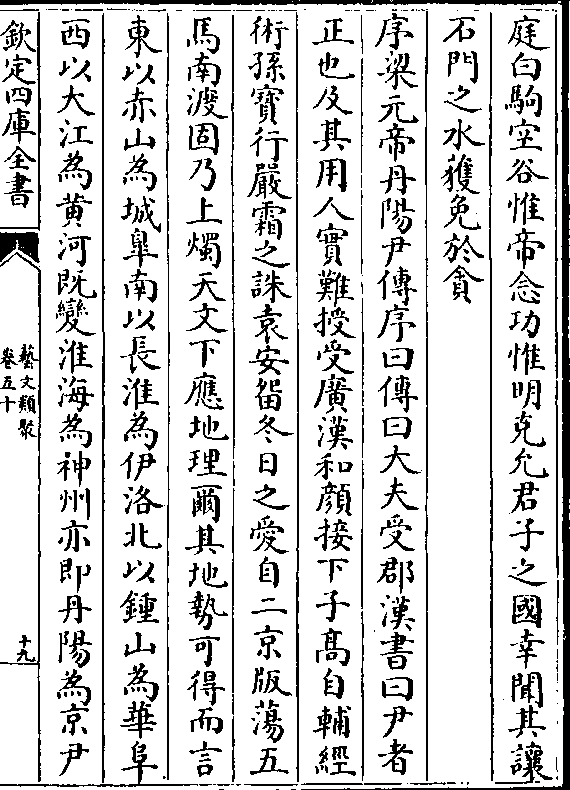 庭白駒空谷惟帝念功惟明克允君子之國幸聞其讓
石門之水獲免於貪
序梁元帝丹陽尹傳序曰傳曰大夫受郡漢書曰尹者
正也及其用人實難授受廣漢和顔接下子髙自輔經
術孫寳行嚴霜之誅袁安留冬日之愛自二京版蕩五
馬南渡固乃上燭天文下應地理爾其地勢可得而言
東以赤山為城臯南以長淮為伊洛北以鍾山為華阜
西以大江為黄河既變淮海為神州亦即丹陽為京尹
欽定四庫全書
藝文類聚
卷五十
十九